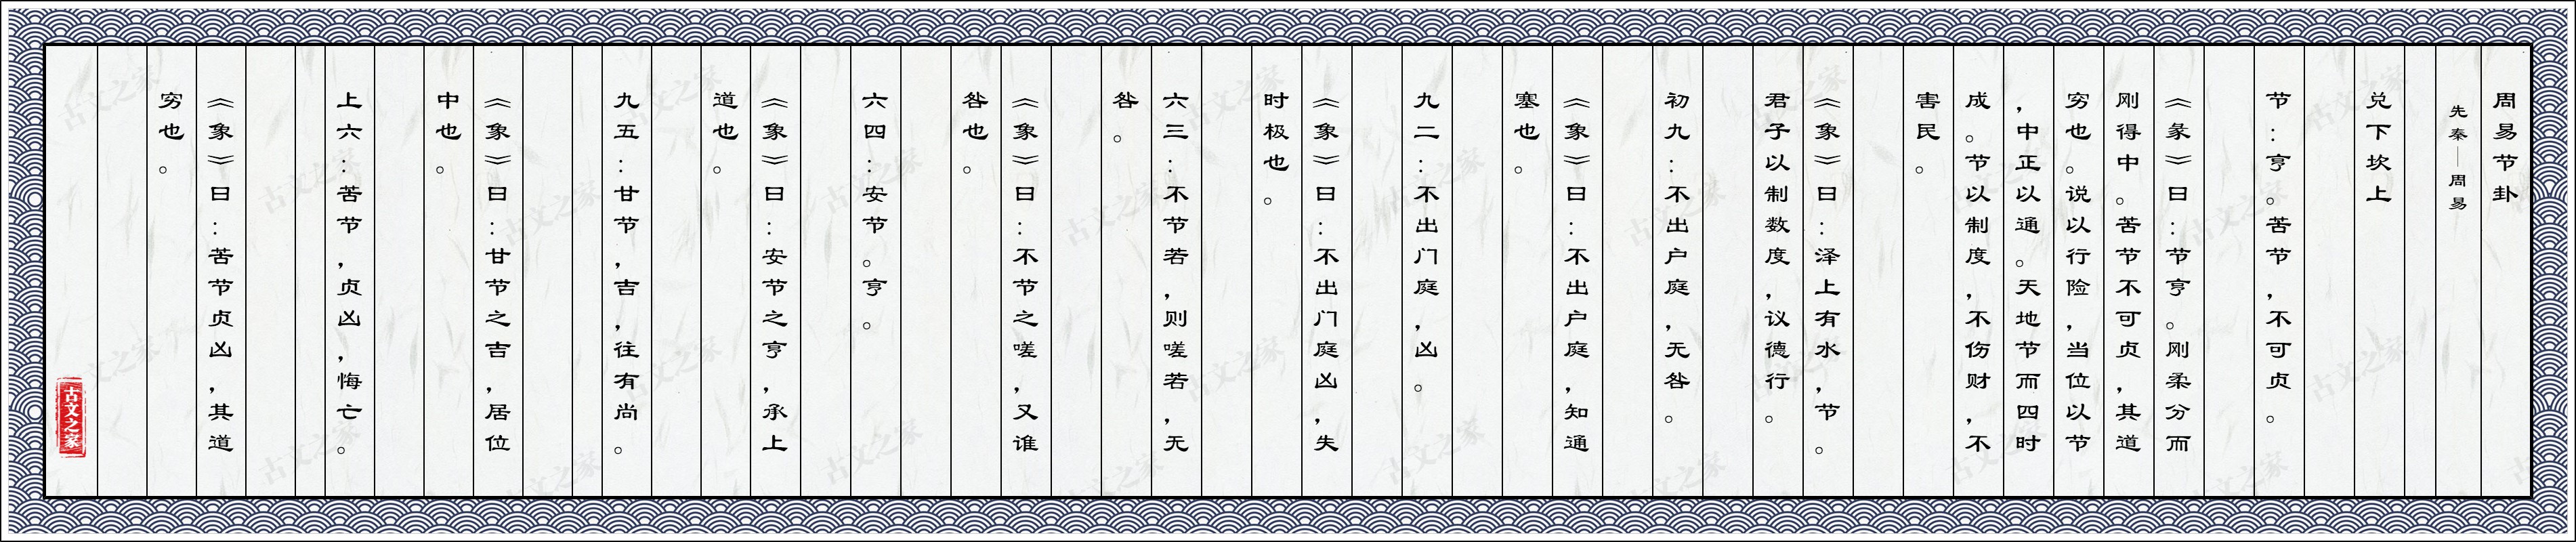 周易节卦
先秦—周易
兑下坎上
节：亨。苦节，不可贞。
《彖》曰：节亨。刚柔分而
刚得中。苦节不可贞，其道
穷也。说以行险，当位以节
，中正以通。天地节而四时
成。节以制度，不伤财，不
害民。
《象》曰：泽上有水，节。
君子以制数度，议德行。
初九：不出户庭，无咎。
《象》曰：不出户庭，知通
塞也。
九二：不出门庭，凶。
《象》曰：不出门庭凶，失
时极也。
六三：不节若，则嗟若，无
咎。
《象》曰：不节之嗟，又谁
咎也。
六四：安节。亨。
《象》曰：安节之亨，承上
道也。
九五：甘节，吉，往有尚。
《象》曰：甘节之吉，居位
中也。
上六：苦节，贞凶，悔亡。
《象》曰：苦节贞凶，其道
穷也。
古文之家